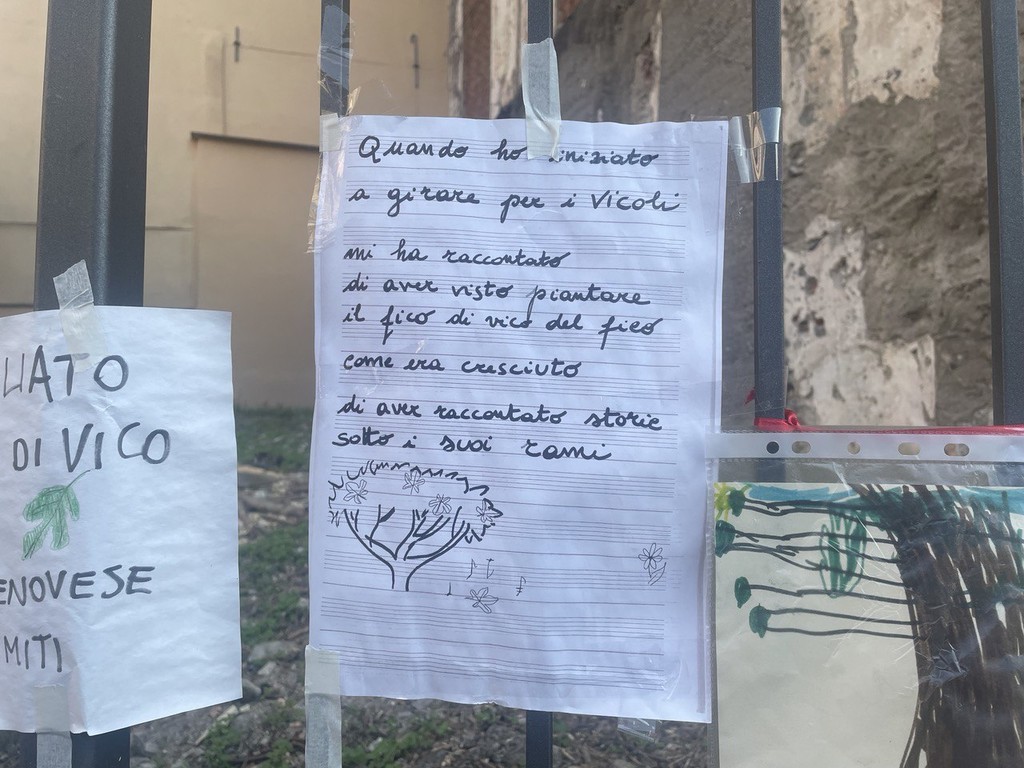 Quando ho iniziato
a girare per i vicoli
mi ha raccontato
di aver visto piantare
il fico di vico del fico
come era cresciuto
di aver raccontato storie
sotto i suoi rami
DI VICO